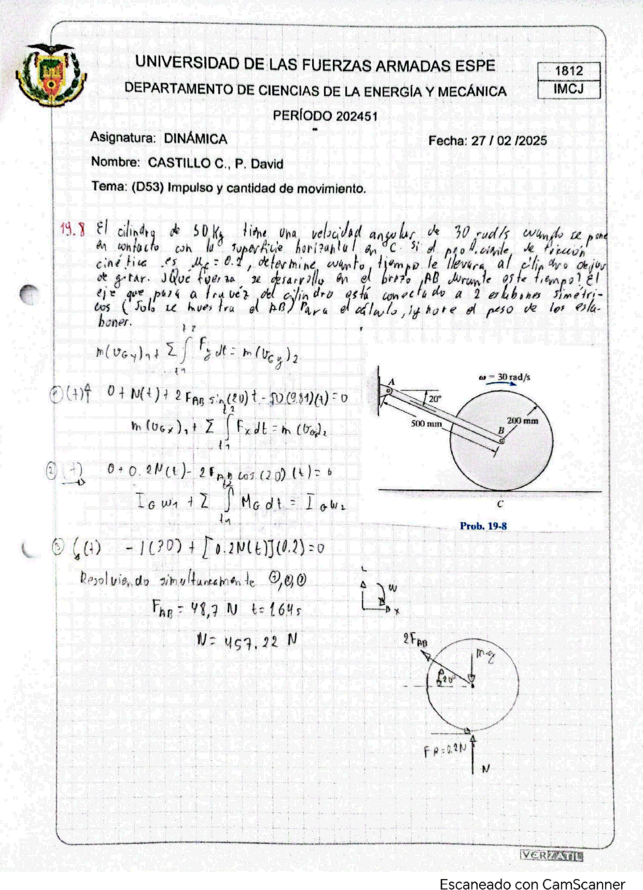 UNIVERSIDAD DE LAS FUERZAS ARMADAS ESPE
1812
DEPARTAMENTO DE CIENCIAS DE LA ENERGÍA Y MECÁNICA
IMCJ
PERÍODO 202451
Asignatura: DINÁMICA
Fecha: 27 / 02 /2025
Nombre: CASTILLO C., P. David
Tema: (D53) Impulso y cantidad de movimiento.
19.8 El cilindro de 50 Kg tiene una velocidad angular de 30 rad/s cuando se pone
en contacto con la superficie horizontal en C. Si el de fricción
cinética es = 0.2, determine cuanto tiempo le llevara al cilindro dejar
de girar. ¿Qué fuerza se desarrolla en el brazo AB durante este tiempo? El
eje que pasa a travéz del cilindro está conectado a 2 eslabones simétri-
cos (Solo se muestra el AB) Para el cálculo, ignore el peso de los esla-
bones.
m(υGy)1 + Σ∫t1t2 Fy dt = m(υGy)2
① (+)↑ 0 + N(t) + 2 FAB sin(20) t - 50(9.81)(t) = 0
m(υGx)1 + Σ∫t1t2 Fx dt = m(υGx)2
② (+)→ 0 + 0.2N(t) - 2FAB cos(20)(t) = 0
IG ω1 + Σ∫t1t2 MG dt = IG ω2
③ (+) - 1(30) + [0.2N(t)](0.2) = 0
Resolviendo simultaneamente
FAB = 48,7 N t = 1.64s
N = 457.22 N
ω = 30 rad/s
A
20°
500 mm
200 mm
B
C
Prob. 19-8
ω
x
2FAB
m·g
20°
FR=0.2N
N
VERZATIL
Escaneado con CamScanner